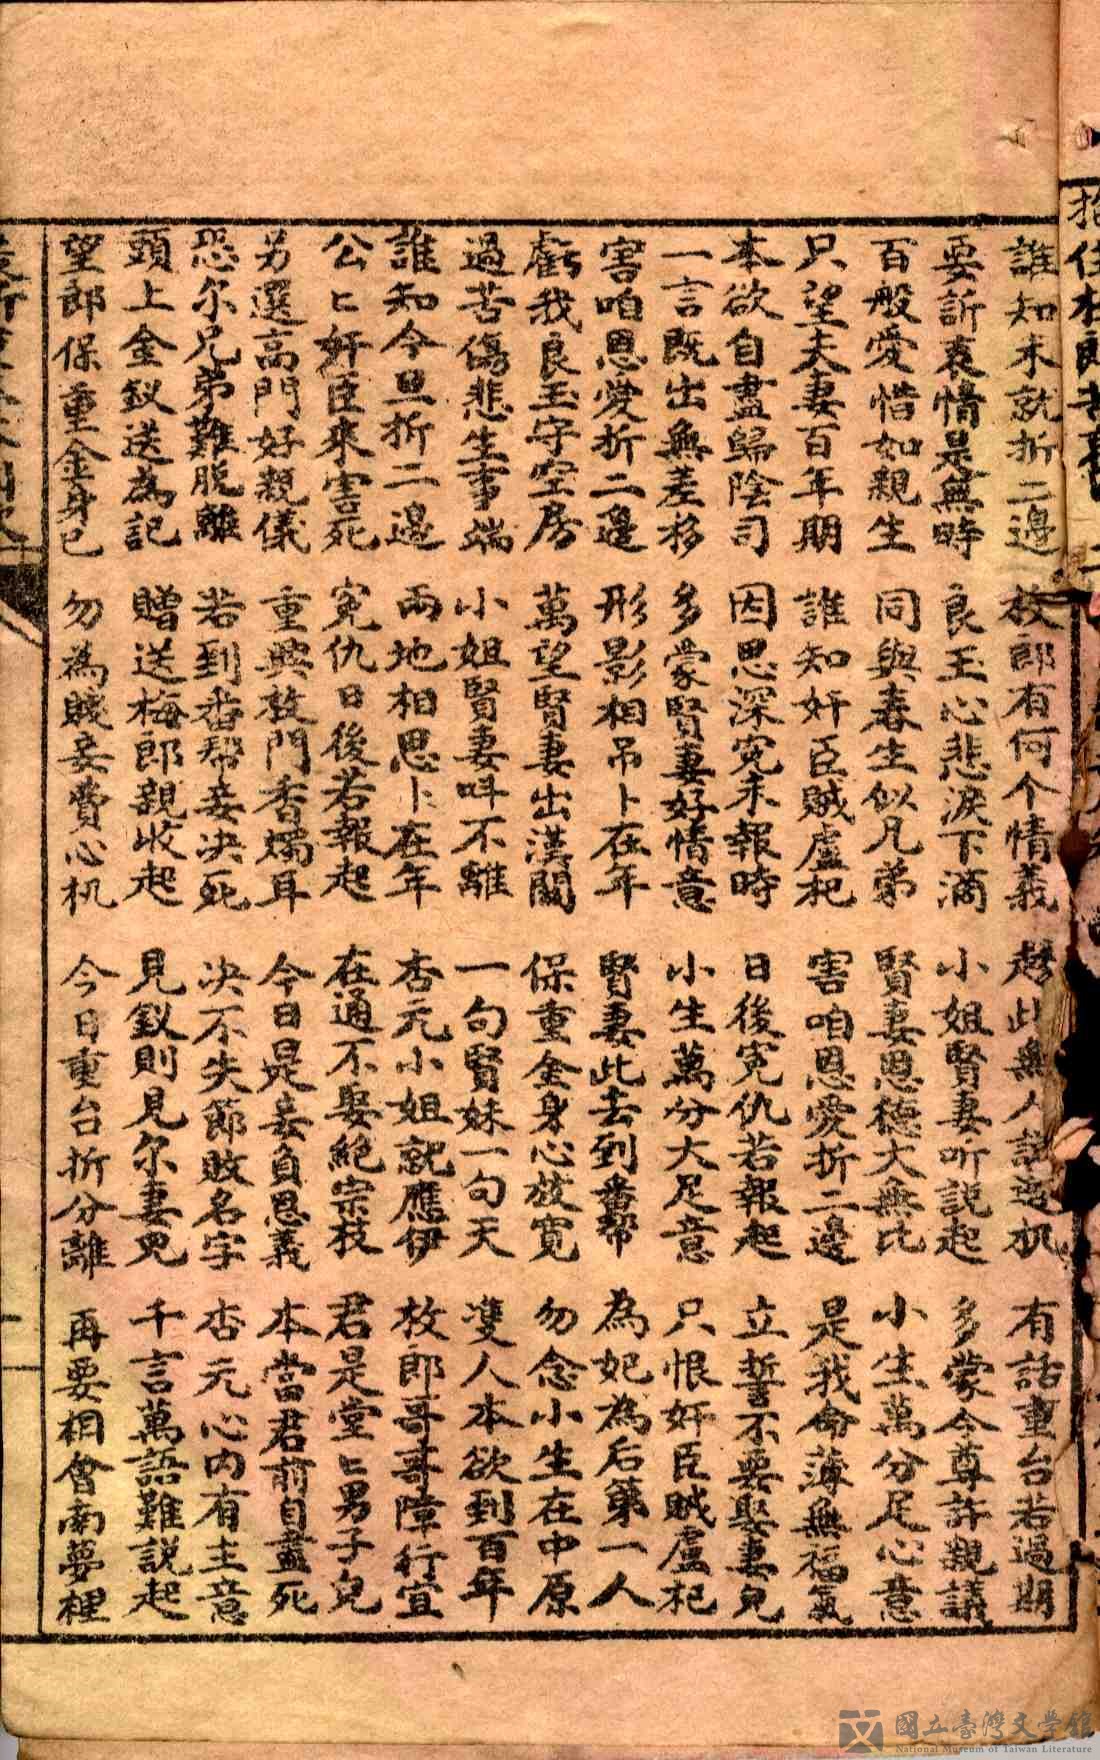 誰知未就折二邊 枚郎有何个情義 趁此無人說透机 有話重台若過期
要訴哀情是無時 良玉心悲淚下滴 小姐賢妻听説起 多蒙令尊許親議
百般愛惜如親生 同與春生似凡弟 賢妻恩德大無比 小生萬分足心意
只望夫妻百年期 誰知奸臣賊盧杞 害咱恩愛折二邊 是我命薄無福氣
本欲自盡歸陰司 因思深冤未報時 日後冤仇若報起 立誓不要娶妻兒
一言既出無差移 多蒙賢妻好情意 小生萬分大足意 只恨奸臣賊盧杞
害咱恩愛折二邊 形影相吊卜在年 賢妻此去到番帮 為妃為后第一人
虧我良玉守空房 萬望賢妻出漢關 保重金身心放寬 勿念小生在中原
過苦傷悲生事端 小姐賢妻呌不離 一句賢妹一句天 雙人本欲到百年
誰知今旦折二邊 兩地相思卜在年 杏元小姐就應伊 枚郎哥哥障行宜
公匕奸臣來害死 冤仇日後若報起 在通不娶絶宗枝 君是堂匕男子兒
另選高門好親儀 重興枚門香燭耳 今日是妾負恩義 本當君前自盡死
恐尔兄弟難脫離 若到番帮妾决死 决不失節敗名字 杏元心内有主意
頭上金釵送為記 贈送梅郎親收起 見釵則見尔妻兒 千言萬語難説起
望郎保重金身己 勿為賤妾費心机 今日重台折分離 再要相會南夢裡
國立臺灣文學館
National Museum of Taiwan Literature